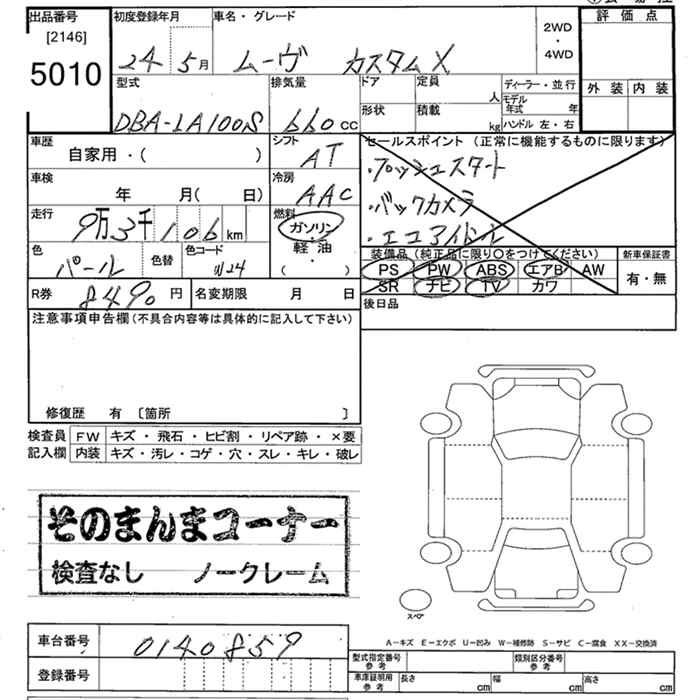 出品番号
[2146]
5010
初度登録年月
24 5月
車名・グレード
ムーヴ カスタムX
2WD
・
4WD
評価点
外装 内装
型式
DBA-LA100S
排気量
660cc
ドア
定員
人
形状
積載
kg
ディーラー・並行
モデル年式 年
ハンドル 左・右
車歴
自家用・( )
シフト
AT
車検
年 月( 日)
冷房
AAC
走行
9万3千106km
燃料
ガソリン
・
軽油
( ・ )
色
パール
色替
色コード
W24
R券
8490円
名変期限 月 日
セールスポイント(正常に機能するものに限ります)
・プッシュスタート
・バックカメラ
・エコアイドル
装備品(純正品に限り〇をつけてください)
PS PW ABS エアB AW
SR ナビ TV カワ
新車保証書
有・無
後日品
注意事項申告欄(不具合内容等は具体的に記入して下さい)
修復歴 有 [箇所 ]
検査員記入欄
FW キズ・飛石・ヒビ割・リペア跡・×要
内装 キズ・汚レ・コゲ・穴・スレ・キレ・破レ
そのまんまコーナー
検査なし ノークレーム
スペア
A-キズ E-エクボ U-凹み W-補修跡 S-サビ C-腐食 XX-交換済
車台番号
0140859
登録番号
型式指定番号
参考
類別区分番号
参考
車庫証明用
参考
長さ cm 幅 cm 高さ cm